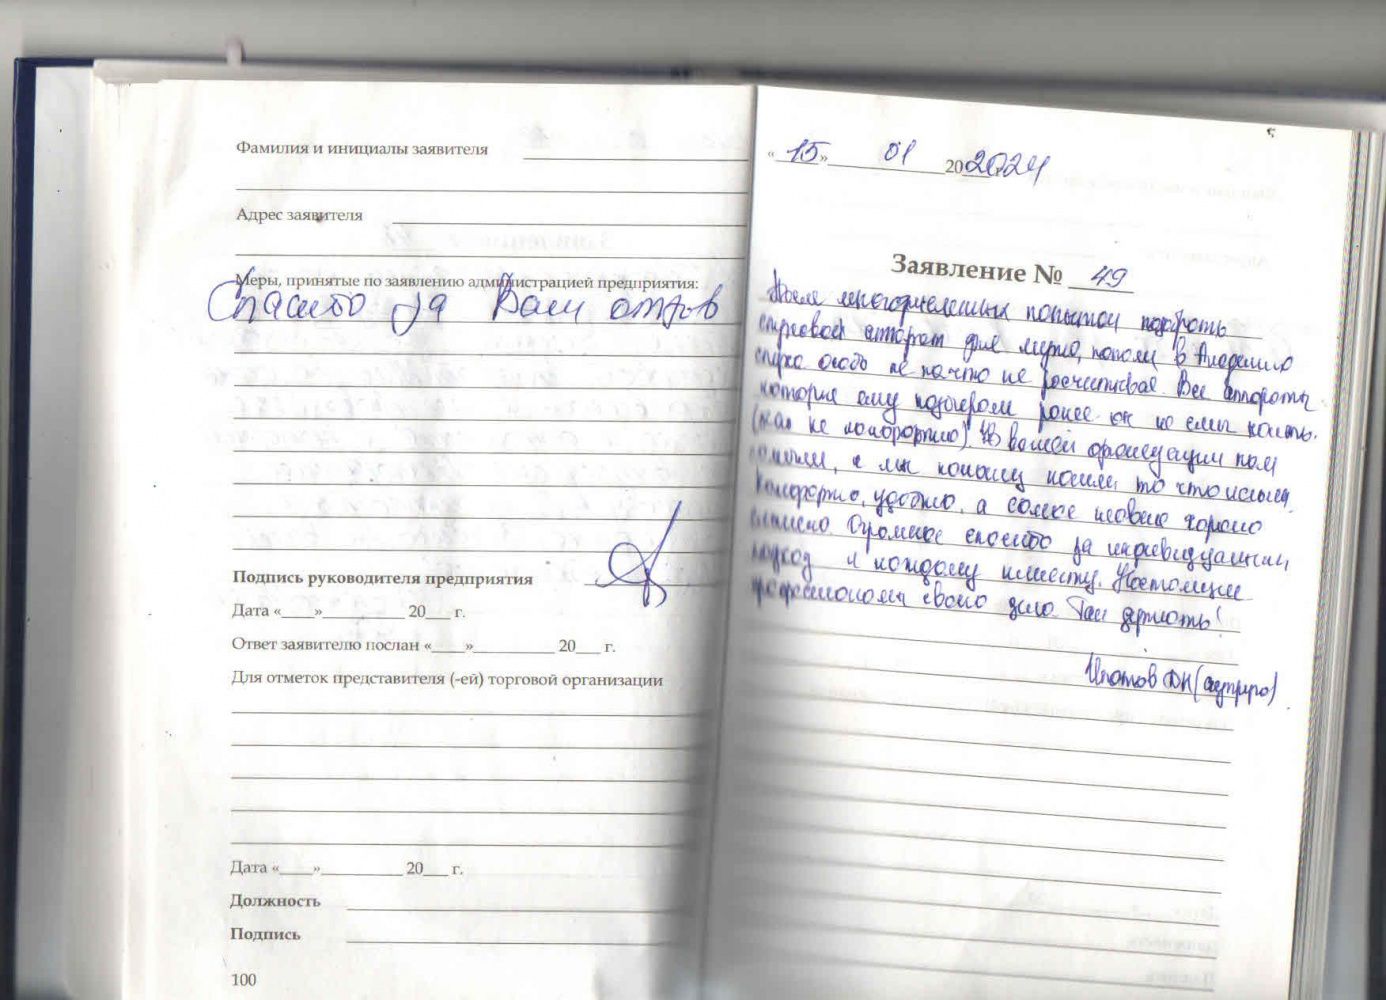 Фамилия и инициалы заявителя
Адрес заявителя
Меры, принятые по заявлению администрацией предприятия:
Спасибо за Ваш отзыв
Подпись руководителя предприятия
Дата «____»__________ 20___ г.
Ответ заявителю послан «____»__________ 20___ г.
Для отметок представителя (-ей) торговой организации
Дата «____»__________ 20___ г.
Должность
Подпись
100
« 15 » 01 20 2024
Заявление № 49
После многочисленных попыток подобрать
слуховой аппарат для мужа, попали в Академию
слуха особо не на что не расчитывая. Все аппараты
которые ему подбирали ранее он не смог носить.
(как не комфортно). В вашей организации нам
помогли, и мы наконец нашли то что искали.
Комфортно, удобно, а самое главное хорошо
слышно. Огромное спасибо за индивидуальный
подход к каждому клиенту. Настоящие
профессионалы своего дела. Так держать!
Ипатов ДН (супруга)